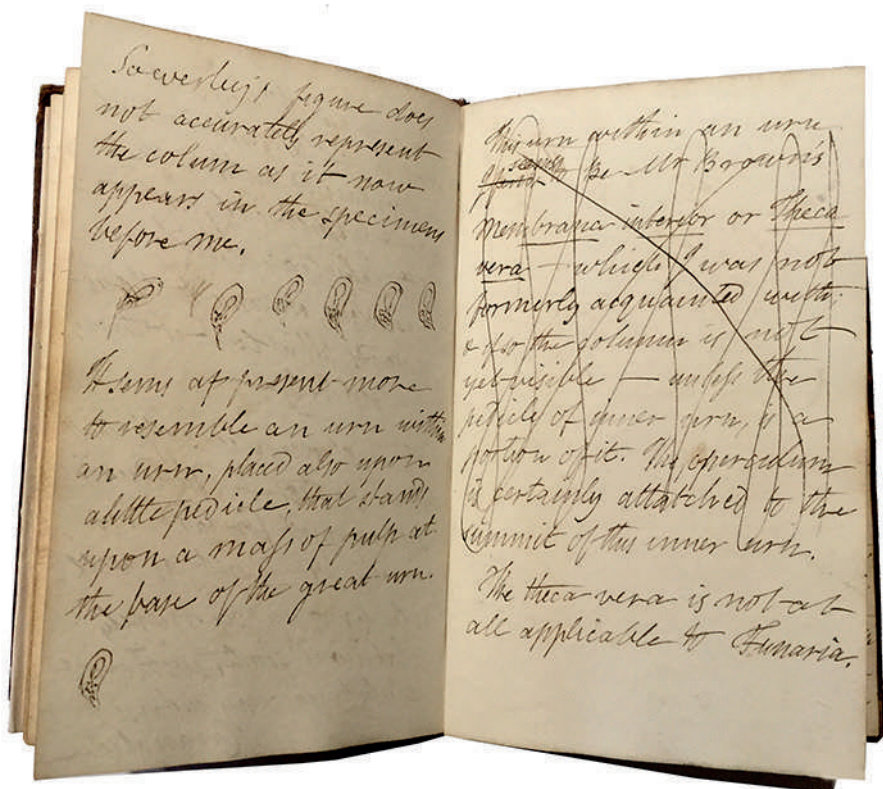 Sowerby's figure does
not accurately represent
the colum as it now
appears in the specimens
before me.
It seems at present more
to resemble an urn within
an urn, placed also upon
a little pedicle, that stands
upon a maſs of pulp at
the base of the great urn.
This urn within an urn
seems to be Mr Brown's
membrana interior or Theca
vera — which I was not
formerly acquainted with.
& if so the column is not
yet visible — unleſs the
pedicle of inner urn, is a
portion of it. The operculum
is certainly attatched to the
summit of this inner urn.
The theca vera is not at
all applicable to Funaria.